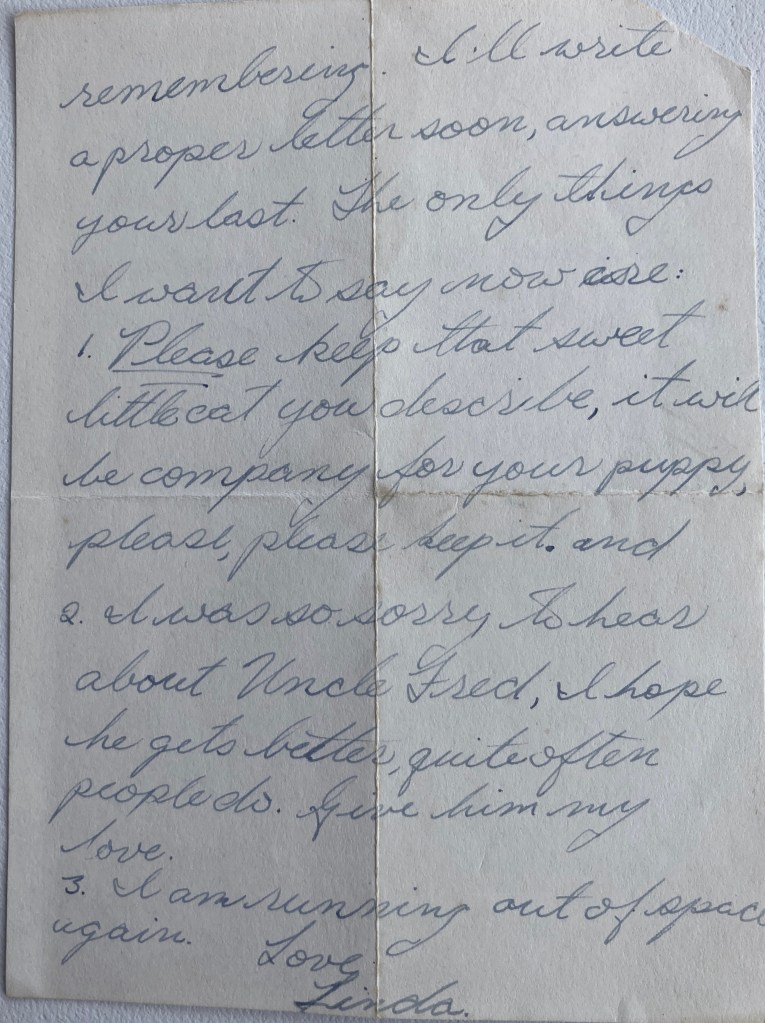 remembering. I'll write
a proper letter soon, answering
your last. The only things
I want to say now are:
1. Please keep that sweet
little cat you describe, it will
be company for your puppy,
please, please keep it. and
2. I was so sorry to hear
about Uncle Fred, I hope
he gets better, quite often
people do. Give him my
love.
3. I am running out of space
again.
Love
Linda.